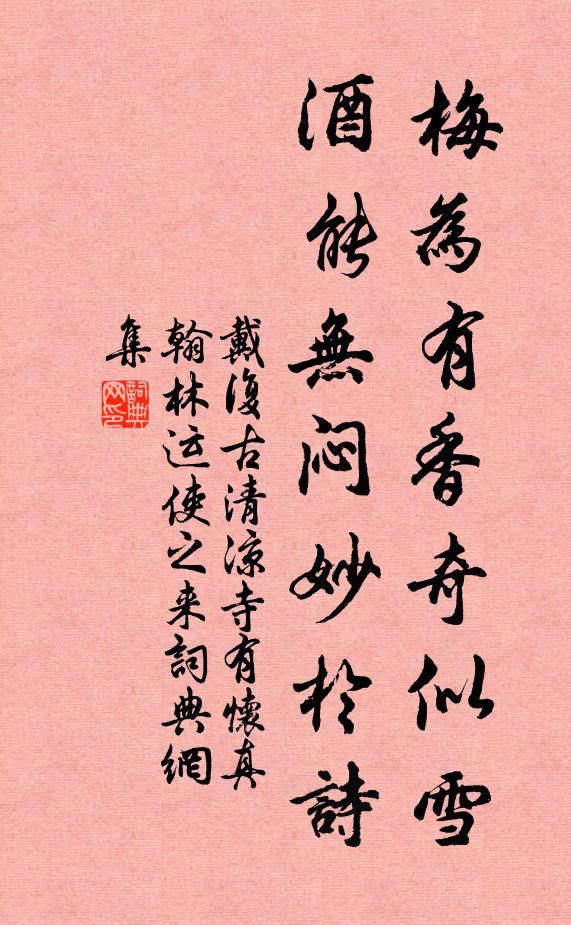 梅為有香奇似雪
酒能無闷妙於詩
戴復古清涼寺有懷真
翰林运使之来詞典網
集
詞典网印